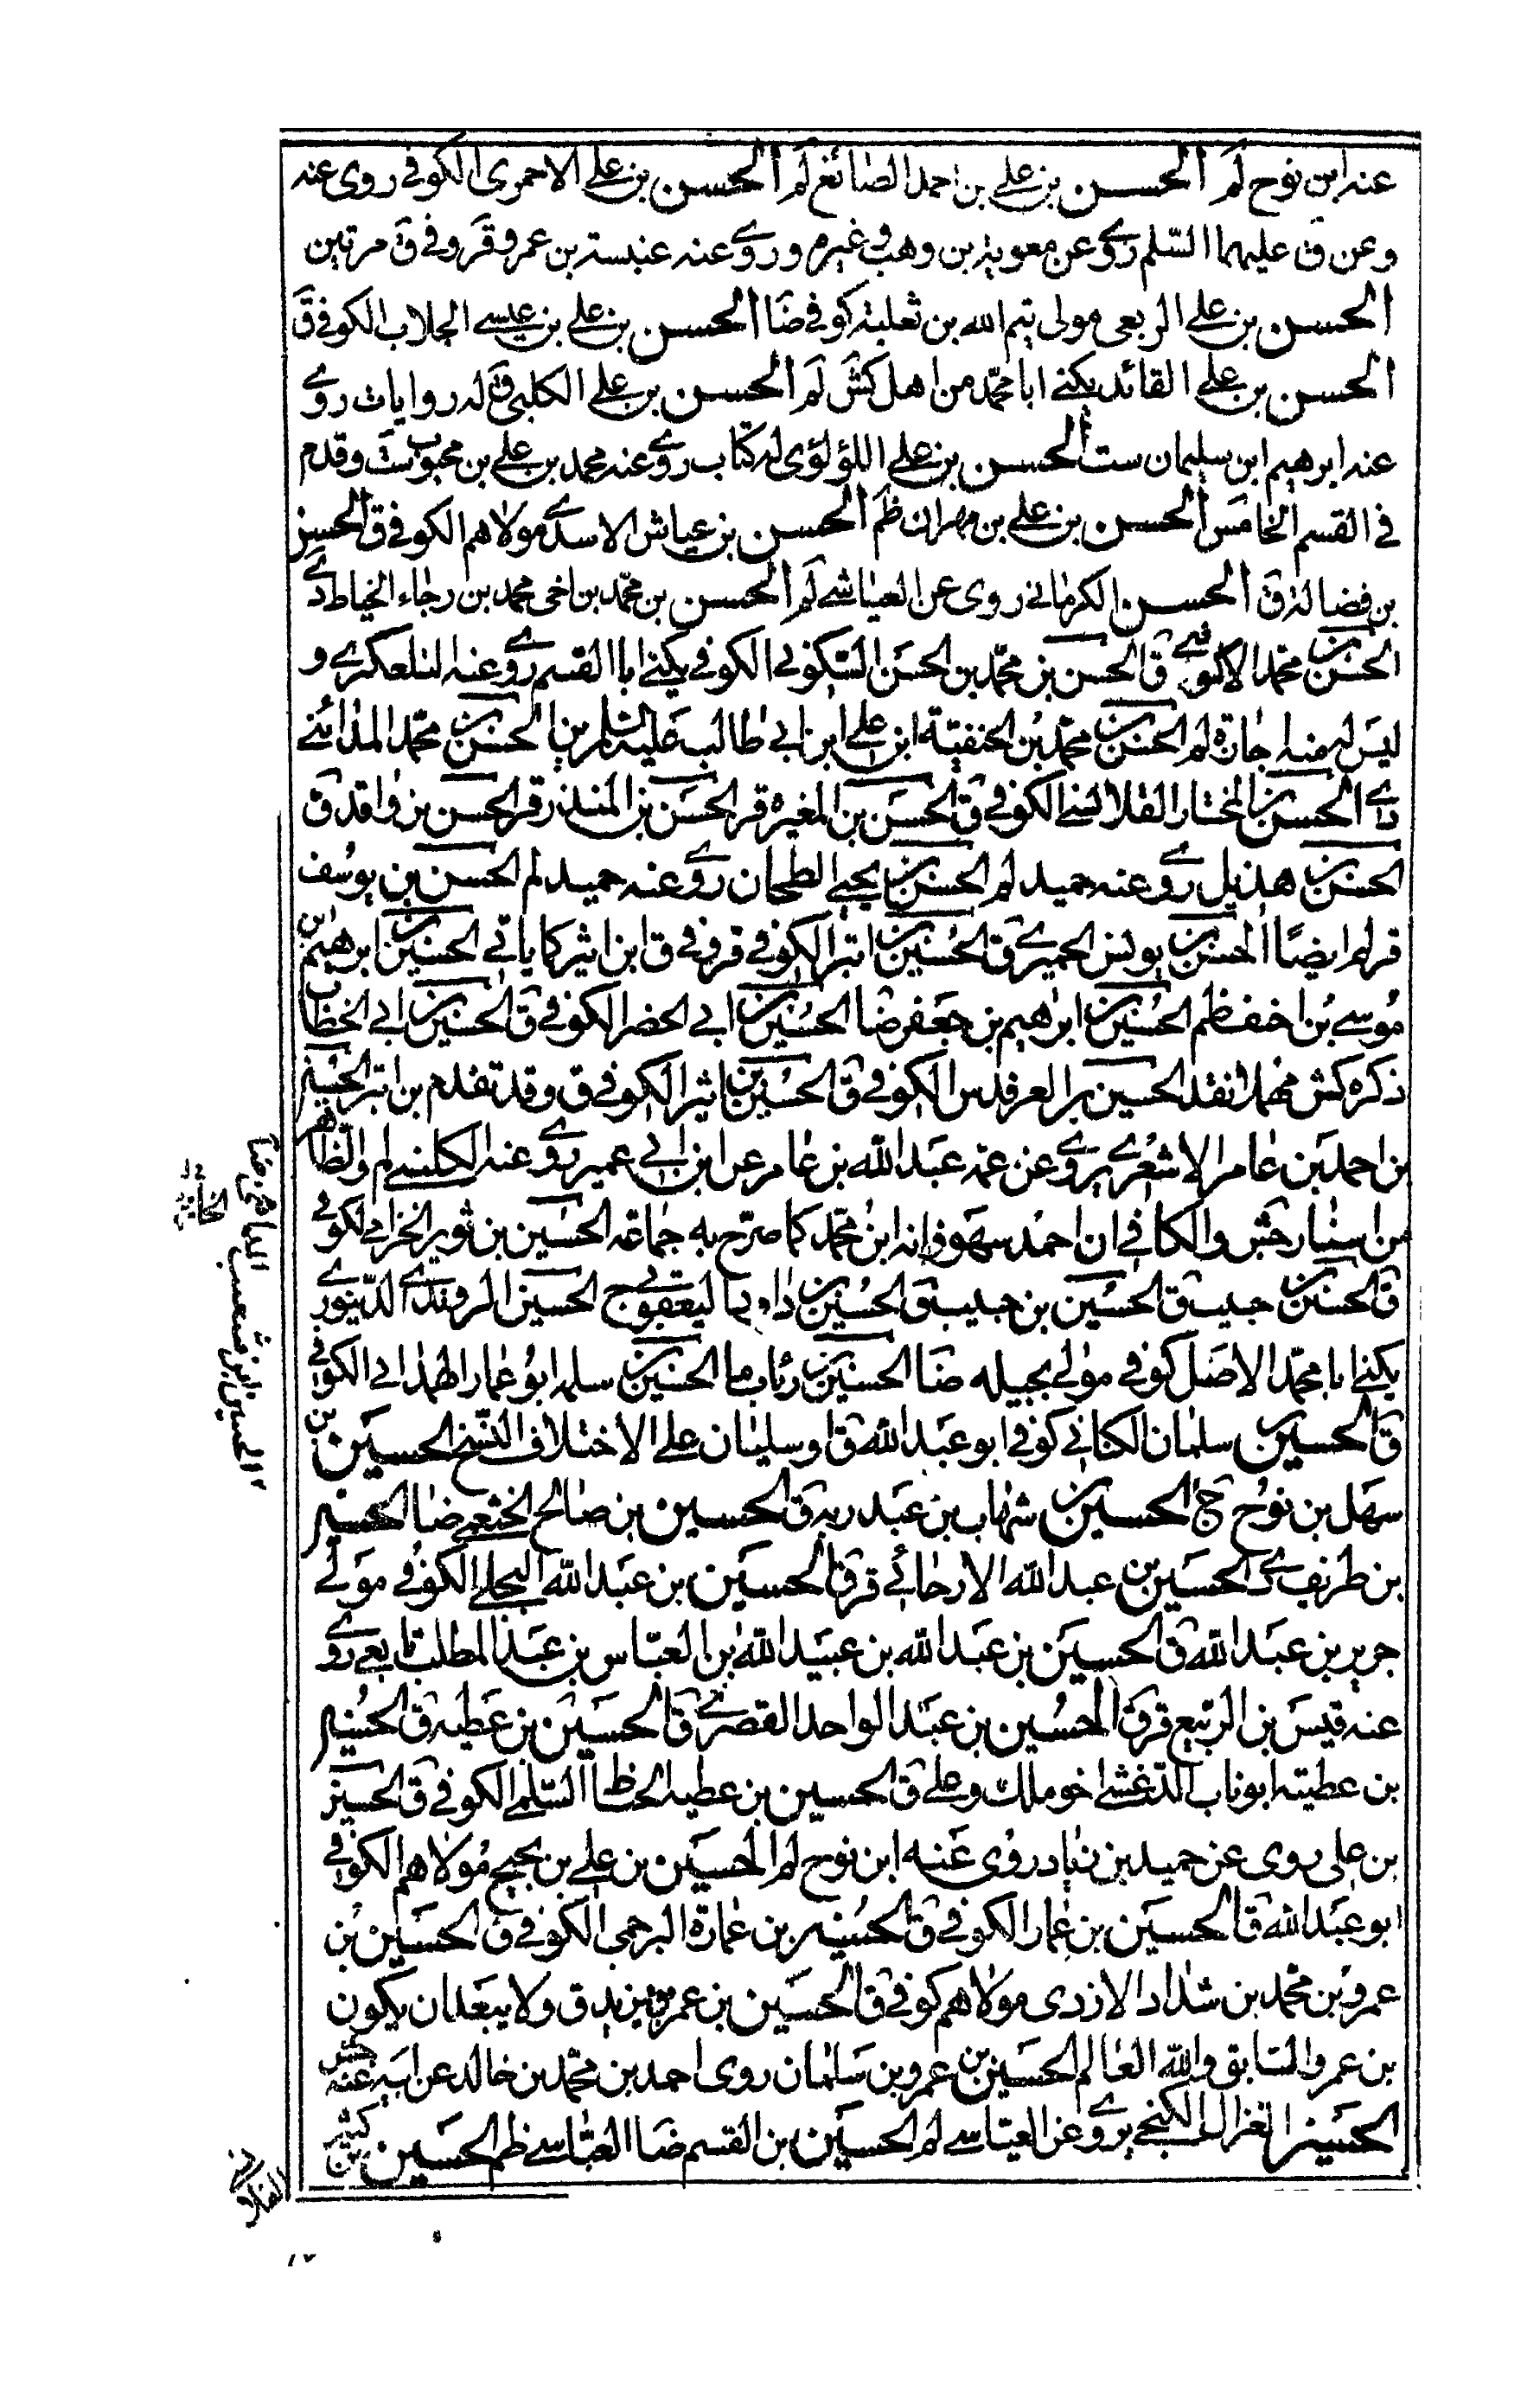 عنه ابن نوح لم الحسن بن علي بن احمد الصائغ لم الحسن بن علي الاحمرى الكوفي روى عنه
و عن ق عليهما السلم روى عن معوية بن وهب في غيرم وروى عنه عنبسة بن عمرو قر وفي ق مرتين
الحسن بن علي الربعى مولى تيم الله بن ثعلبة كوفي ضا الحسن بن علي بن عيسى الجلاب الكوفي ق
الحسن بن علي القائد يكنى ابا محمد من اهل كش لم الحسن بن علي الكلبي ق له روايات روى
عنه ابرهيم ابن سليمان ست الحسن بن علي اللؤلؤى له كتاب روى عنه محمد بن علي بن محبوب ست وقدم
في القسم الخامس الحسن بن علي بن مهران ظم الحسن بن عياش الاسدى مولاهم الكوفي ق الحسن
بن فضالة ق الحسن الكرماني روى عن العياشي لم الحسن بن محمد بن اخى محمد بن رجاء الخياط دى
الحسن بن محمد ق الحسن بن محمد بن الحسن السكوني الكوفي يكنى ابا القسم روى عنه التلعكبرى و
ليس له منه اجازة لم الحسن بن محمد بن الحنفية ابن علي ابن ابي طالب عليه السلم ين الحسن بن محمد المدائني
دى الحسن بن المختار القلانسي الكوفي ق الحسن بن المغيره قر الحسن بن المنذر قر الحسن بن واقد ق
الحسن بن هذيل روى عنه حميد لم الحسن بن يحيى الطحان روى عنه حميد لم الحسن بن يوسف
قر لم ايضًا الحسن بن يونس الحميرى ق الحسين بن ابتر الكوفي قر وفي ق ابن اثير كما ياتي الحسين بن ابرهيم ابن
موسى بن احنف ظم الحسين بن ابرهيم بن جعفر ضا الحسين بن ابي الخضر الكوفي ق الحسين بن ابي الخطاب
ذكره كش مهملا نقد الحسين بن الكوفي ق الحسين بن اثير الكوفي ق وقد تقدم بن ابتر الحسين
بن احمد بن عامر الاشعرى يروى عن عمه عبد الله بن عامر عن ابن ابي عمير روى عنه الكليني لم والظاهر
من اسناد جش والكافي ان احمد سهو فانه ابن محمد كما صرح به جماعة الحسين بن ثوير الكوفي
ق الحسين بن حبيب ق الحسين بن حبيب ق الحسين بن داود اليعقوبي ج الحسين الدينورى
يكنى ابا محمد الاصل كوفي مولى بجيله ضا الحسين بن رئاب ما الحسين بن سلمه ابو عمار الهمداني الكوفي
ق الحسين بن سلمان الكناني كوفي ابو عبد الله ق او سليمان على الاختلاف النسخ الحسين بن
سهل بن نوح ج الحسين بن شهاب بن عبد ربه ق الحسين بن صالح الخثعمي ضا الحسين
بن طريف دى الحسين بن عبد الله الارجائي قر ق الحسين بن عبد الله البجلي الكوفي مولى
جرير بن عبد الله ق الحسين بن عبد الله بن عبيد الله بن العباس بن عبد المطلب تابعي روى
عنه قيس بن الربيع قر ق الحسين بن عبد الواحد القصرى ق الحسين بن عطيه ق الحسين
بن عطيته ابو ناب الدغشى اخو ملك وعلي ق الحسين بن عطيه الحناط السلمي الكوفي ق الحسين
بن على روى عن حميد بن زياد روى عنه ابن نوح لم الحسين بن علي بن نجيح مولاهم الكوفي
ابو عبد الله ق الحسين بن عمار الكوفي ق الحسين بن عمارة البرجمي الكوفي ق الحسين بن
عمرو بن محمد بن شداد الازدى مولاهم كوفي ق الحسين بن عمرو بن يزيد ق ولا يبعد ان يكون
بن عمر والسابق والله العالم الحسين بن عمرو بن سلمان روى احمد بن محمد بن خالد عن ابيه عنه جش
الحسين الغزال الكنجي يروى عن العياشي لم الحسين بن القسم ضا العباسي ظم الحسين بن كثير
الحسين بن شعيب المدائني ضا
القلانسي